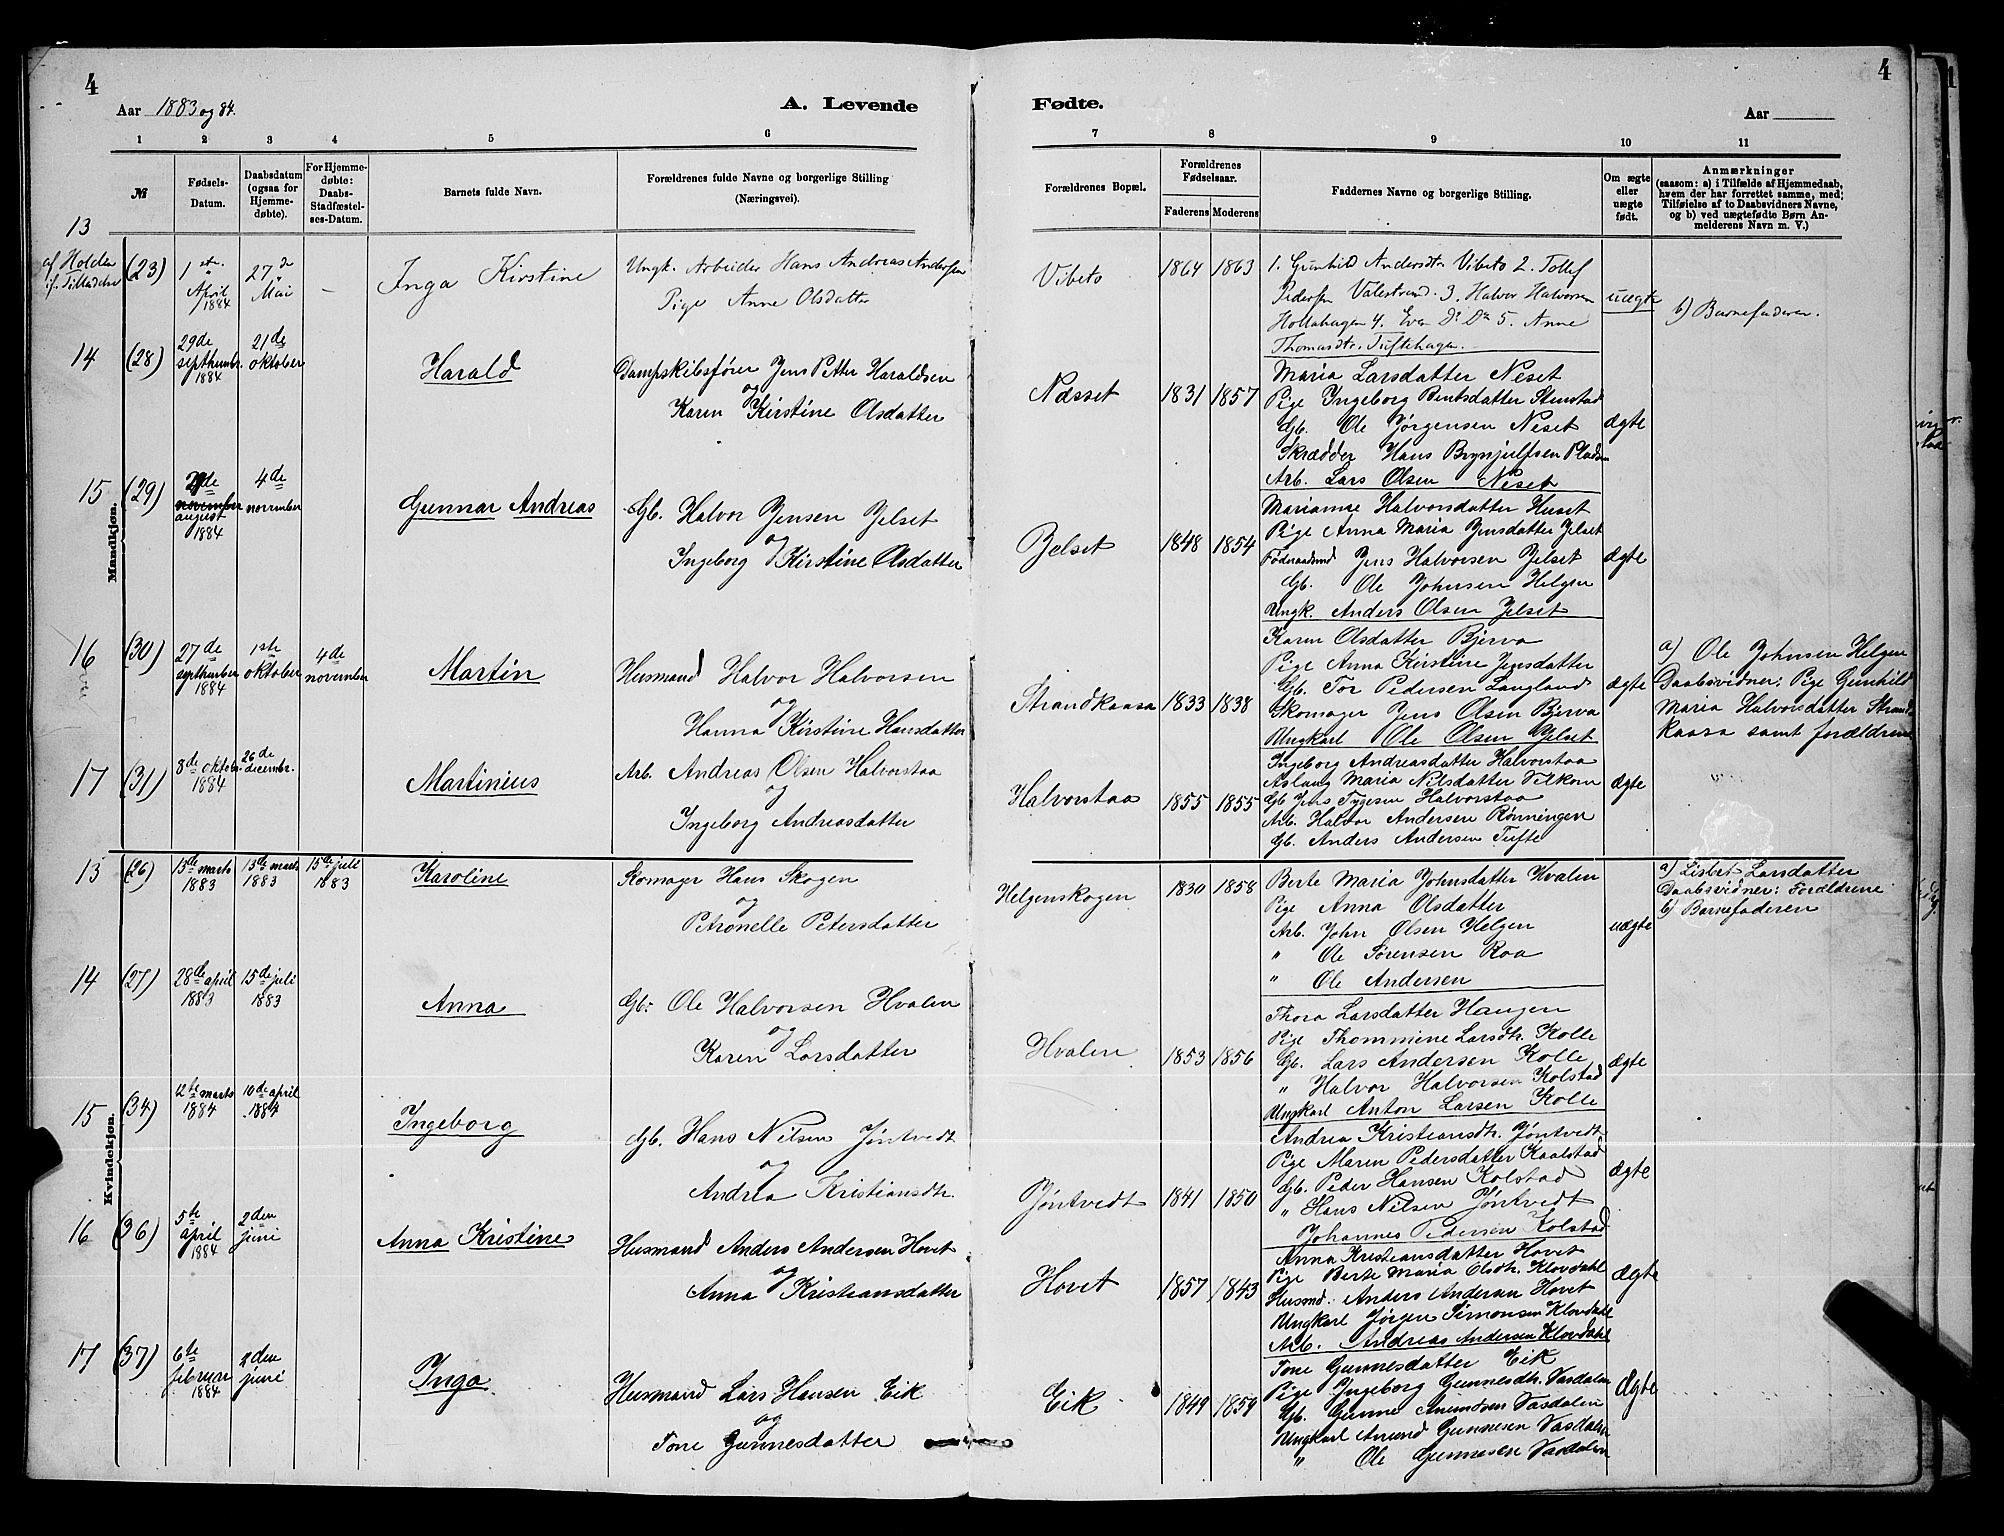 4
Aar 1883 og 84.
A. Levende
1 2 3 4 5 6
№
Fødsels-Datum.
Daabsdatum (ogsaa for Hjemmedøbte).
For Hjemmedøbte: Daabs-Stadfæstelses-Datum.
Barnets fulde Navn.
Forældrenes fulde Navne og borgerlige Stilling (Næringsvei).
Mandkjøn.
13
af Holden
(23)
1ste April 1884
27de Mai
-
Inga Kirstine
Ungk. Arbeider Hans Andreas Andersen
Pige Anne Olsdatter
14
(28)
29de septhember 1884
21de oktober
Harald
Dampskibsfører Jens Petter Haraldsen
og
Karen Kirstine Olsdatter
15
(29)
august 1884
4de november
Gunnar Andreas
Gb. Halvor Jensen Jelset
og
Ingeborg Kirstine Olsdatter
16
(30)
27de septhember 1884
1ste oktober
4de november
Martin
Husmand Halvor Halvorsen
og
Hanna Kirstine Hansdatter
17
(31)
8de oktobr. 1884
26de decembr.
Martinius
Arb. Andreas Olsen Halvorstaa
og
Ingeborg Andreasdatter
Kvindekjøn.
13
(26)
13de marts 1883
13de marts 1883
15de juli 1883
Karoline
Skomager Hans Skogen
og
Petronelle Petersdatter
14
(27)
28de april 1883
15de juli 1883
Anna
Gb. Ole Halvorsen Hvalen
og
Karen Larsdatter
15
(34)
12te marts 1884
10de april 1884
Ingeborg
Gb. Hans Nilsen Jøntvedt
og
Andrea Kristiansdtr.
16
(36)
5te april 1884
2den juni
Anna Kristine
Husmand Anders Andersen Hovet
og
Anna Kristiansdatter
17
(37)
6te februar 1884
2den juni
Inga
Husmand Lars Hansen Eik
og
Tone Gunnesdatter
4
Fødte.
Aar
7 8 9 10 11
Forældrenes Bopæl.
Forældrenes Fødselsaar.
Faderens Moderens
Faddernes Navne og borgerlige Stilling.
Om ægte eller uægte født.
Anmærkninger
(saasom: a) i Tilfælde af Hjemmedaab,
hvem der har forrettet samme, med;
Tilføielse af to Daabsvidners Navne,
og b) ved uægtefødte Børn An-
melderens Navn m. V.)
Vibeto
1864 1863
1. Gunhild Andersdtr Vibeto 2. Tollef
Pedersen Valestrand. 3. Halvor Halvorsen
Holtahagen 4. Even Do Do 5. Anne
Thomasdtr. Tuftehagen.
uægte
b) Barnefaderen.
Næsset
1831 1857
Maria Larsdatter Neset
Pige Ingeborg Bentsdatter Stenstad
Gb. Ole Jørgensen Neset
Skrædder Hans Brynjulfsen Pladsen
Arb. Lars Olsen Neset
ægte
Jelset
1848 1854
Marianne Halvorsdatter Huset
Pige Anna Maria Jensdatter Jelset
Føderaadsmd Jens Halvorsen Jelset
Gb. Ole Johnsen Helgen
Ungk. Anders Olsen Jelset
ægte
Strandkaasa
1833 1838
Karen Olsdatter Bjerva
Pige Anna Kirstine Jensdatter
Gb. Tor Pedersen Langland
Skomager Jens Olsen Bjerva
Ungkarl Ole Olsen Jelset
ægte
a) Ole Johnsen Helgen
Daabsvidner: Pige Gunhild
Maria Halvorsdatter Strand-
kaasa samt forældrene
Halvorstaa
1855 1855
Ingeborg Andreasdatter Halvorstaa
Aslaug Maria Nilsdatter Vilkom
Gb. Jens Tygesen Halvorstaa
Arb. Halvor Andersen Rønningen
Gb. Anders Andersen Tufte
ægte
Helgenskogen
1830 1858
Berte Maria Johnsdatter Hvalen
Pige Anna Olsdatter
Arb. John Olsen Helgen
" Ole Sørensen Roa
" Ole Andersen
uægte
a) Lisbet Larsdatter
Daabsvidner: Forældrene
b) Barnefaderen
Hvalen
1853 1856
Thora Larsdatter Haugen
Pige Thommine Larsdtr. Kolle
Gb. Lars Andersen Kolle
" Halvor Halvorsen Kolstad
Ungkarl Anton Larsen Kolle
ægte
Jøntvedt
1841 1850
Andrea Kristiansdtr. Jøntvedt
Pige Maren Pedersdatter Kaalstad
Gb. Peder Hansen Kolstad
" Hans Nilsen Jøntvedt
Johannes Pedersen Kolstad
ægte
Hovet
1857 1843
Anna Kristiansdatter Hovet
Pige Berte Maria Olsdtr. Klovdahl
Husmd. Anders Andersen Hovet
Ungkarl Jørgen Simonsen Klovdahl
Arb. Andreas Andersen Klovdahl
ægte
Eik
1849 1859
Tone Gunnesdatter Eik
Pige Ingeborg Gunnesdtr. Vasdalen
Gb. Gunne Amundsen Vasdalen
Ungkarl Amund Gunnesen Vasdalen
" Ole Gunnesen Vasdalen
ægte